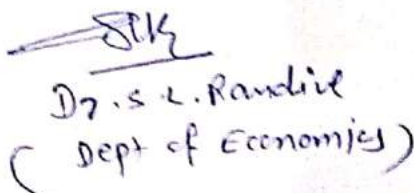 Dr. S. L. Randive
( Dept of Economics )